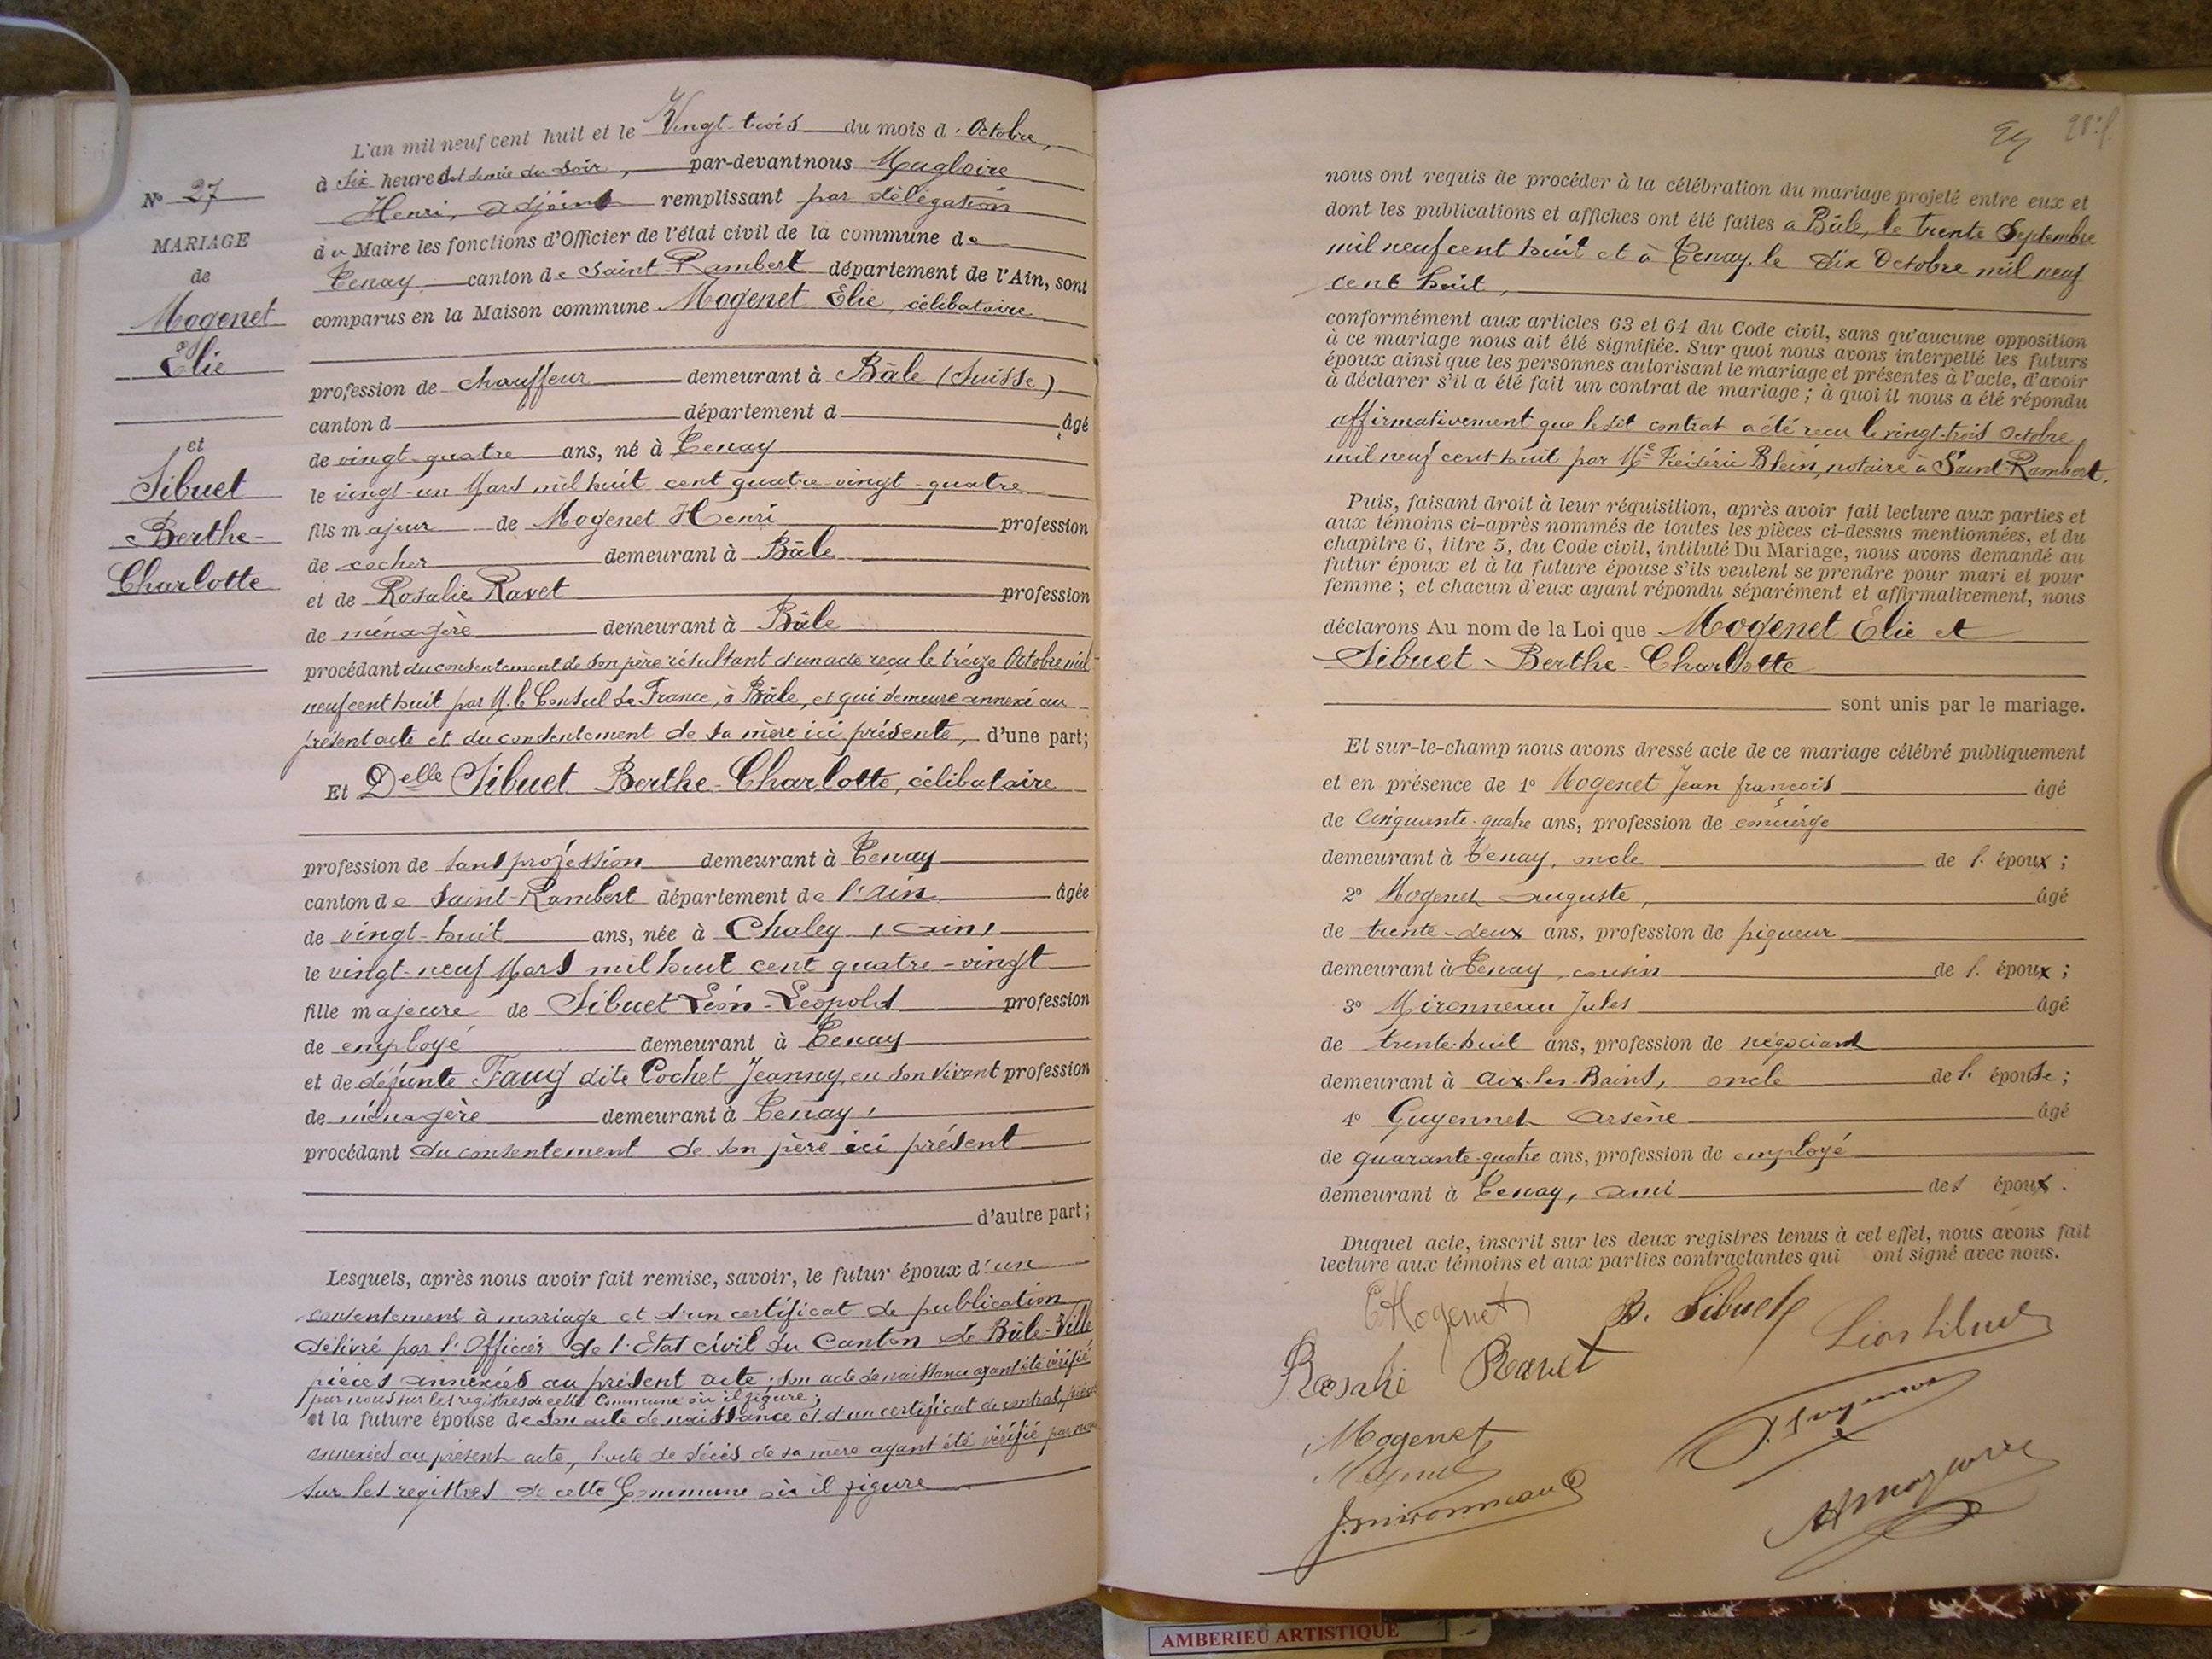 N° 27
MARIAGE
de
Mogenet
Elie
et
Sibuet
Berthe-
Charlotte
L'an mil neuf cent huit et le Vingt-trois du mois d'Octobre,
à six heures et demie du soir, par-devant nous Magloire
Henri, adjoint remplissant par délégation
du Maire les fonctions d'Officier de l'état civil de la commune de
Tenay canton de Saint-Rambert département de l'Ain, sont
comparus en la Maison commune Mogenet Elie, célibataire
profession de chauffeur demeurant à Bâle (Suisse)
canton d département d âgé
de vingt-quatre ans, né à Tenay
le vingt-un Mars mil huit cent quatre-vingt-quatre
fils majeur de Mogenet Henri profession
de cocher demeurant à Bâle
et de Rosalie Ravet profession
de ménagère demeurant à Bâle
procédant du consentement de son père résultant d'un acte reçu le treize Octobre mil
neuf cent huit par M. le Consul de France, à Bâle, et qui demeure annexé au
présent acte et du consentement de sa mère ici présente, d'une part;
Et Delle Sibuet Berthe-Charlotte, célibataire
profession de sans profession demeurant à Tenay
canton de Saint-Rambert département de l'Ain âgée
de vingt-huit ans, née à Chaley (Ain)
le vingt-neuf Mars mil huit cent quatre-vingt
fille majeure de Sibuet Léon-Léopold profession
de employé demeurant à Tenay
et de défunte Faug dite Cochet Jeanny, en son vivant profession
de ménagère demeurant à Tenay,
procédant du consentement de son père ici présent
d'autre part;
Lesquels, après nous avoir fait remise, savoir, le futur époux d'un
consentement à mariage et d'un certificat de publication
délivré par l'Officier de l'Etat civil du Canton de Bâle-Ville
pièces annexées au présent acte; son acte de naissance ayant été vérifié
par nous sur les registres de cette Commune où il figure;
et la future épouse de son acte de naissance et d'un certificat de contrat, pièces
annexées au présent acte, l'acte de décès de sa mère ayant été vérifié par nous
sur les registres de cette Commune où il figure
nous ont requis de procéder à la célébration du mariage projeté entre eux et
dont les publications et affiches ont été faites à Bâle, le trente Septembre
mil neuf cent huit et à Tenay, le dix Octobre mil neuf
cent huit,
conformément aux articles 63 et 64 du Code civil, sans qu'aucune opposition
à ce mariage nous ait été signifiée. Sur quoi nous avons interpellé les futurs
époux ainsi que les personnes autorisant le mariage et présentes à l'acte, d'avoir
à déclarer s'il a été fait un contrat de mariage; à quoi il nous a été répondu
affirmativement que le dit contrat a été reçu le vingt-trois Octobre
mil neuf cent huit par Me Frédéric Blein, notaire à Saint-Rambert.
Puis, faisant droit à leur réquisition, après avoir fait lecture aux parties et
aux témoins ci-après nommés de toutes les pièces ci-dessus mentionnées, et du
chapitre 6, titre 5, du Code civil, intitulé Du Mariage, nous avons demandé au
futur époux et à la future épouse s'ils veulent se prendre pour mari et pour
femme; et chacun d'eux ayant répondu séparément et affirmativement, nous
déclarons Au nom de la Loi que Mogenet Elie et
Sibuet Berthe-Charlotte
sont unis par le mariage.
Et sur-le-champ nous avons dressé acte de ce mariage célébré publiquement
et en présence de 1° Mogenet Jean françois âgé
de cinquante-quatre ans, profession de concierge
demeurant à Tenay, oncle de l'époux;
2° Mogenet Auguste, âgé
de trente-deux ans, profession de piqueur
demeurant à Tenay, cousin de l'époux;
3° Mironneau Jules âgé
de trente-huit ans, profession de négociant
demeurant à Aix-les-Bains, oncle de l'épouse;
4° Guyennet Arsène âgé
de quarante-quatre ans, profession de employé
demeurant à Tenay, ami des époux.
Duquel acte, inscrit sur les deux registres tenus à cet effet, nous avons fait
lecture aux témoins et aux parties contractantes qui ont signé avec nous.
E Mogenet B. Sibuet Léon Sibuet
Rosalie Ravet
Mogenet
J. Mironneau
AMBERIEU ARTISTIQUE